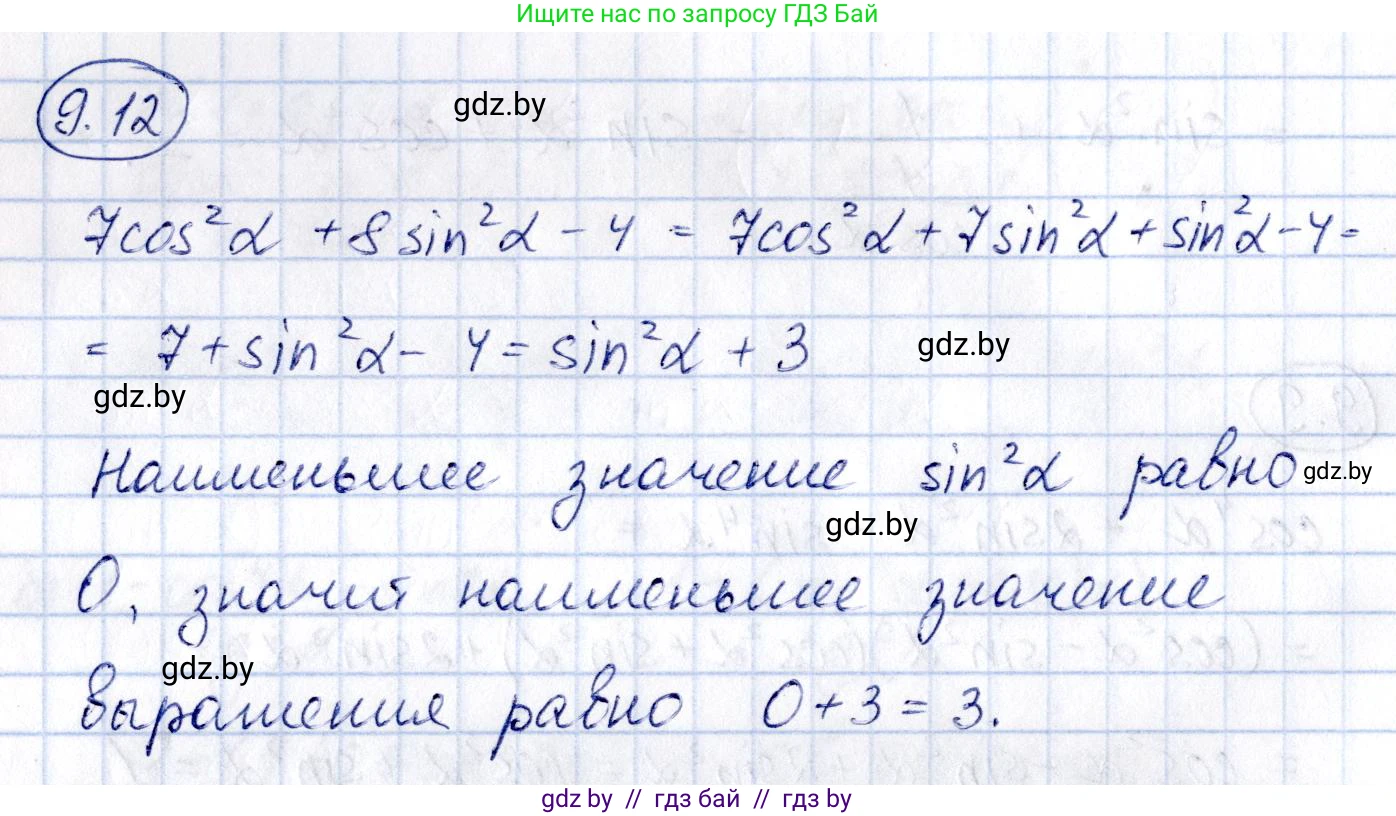 Ищите нас по запросу ГДЗ Бай
9.12
gdz.by
7cos²α + 8sin²α - 4 = 7cos²α + 7sin²α + sin²α - 4 =
= 7 + sin²α - 4 = sin²α + 3
gdz.by
gdz.by
Наименьшее значение sin²α равно
gdz.by
gdz.by
0, значит наименьшее значение
gdz.by
выражения равно 0 + 3 = 3.
gdz by // гдз бай // гдз by